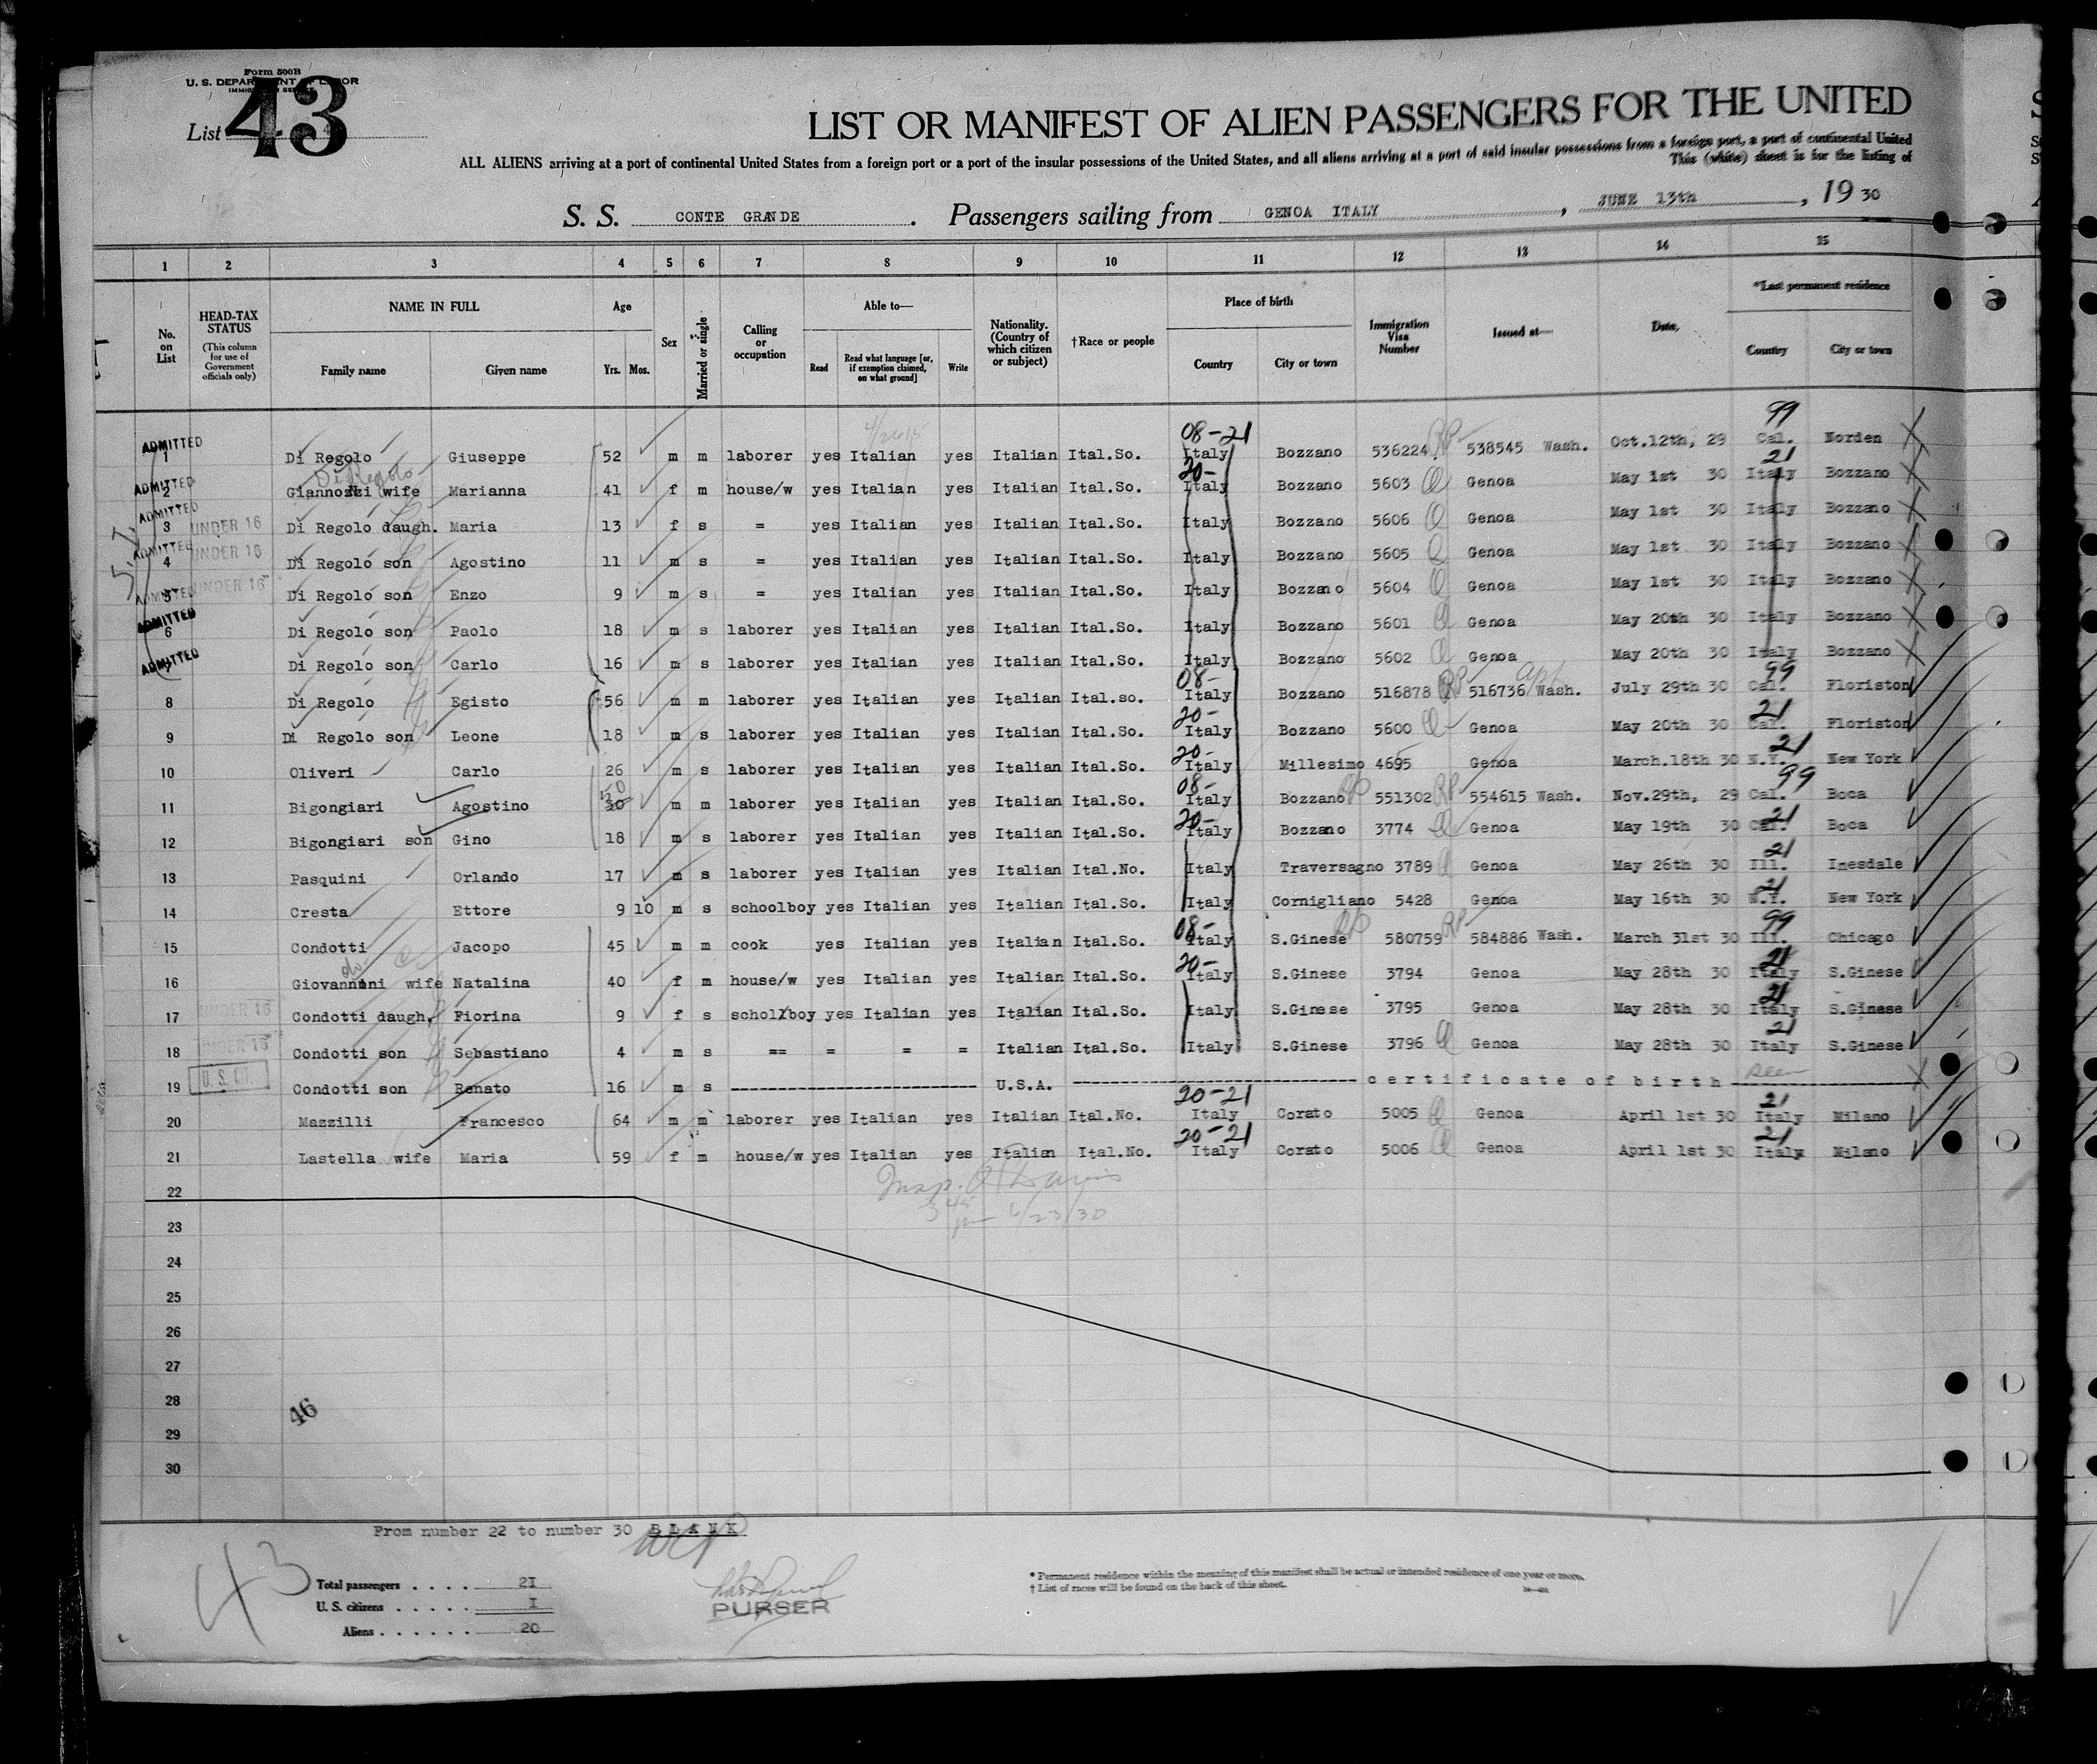 Form 500B
U. S. DEPARTMENT OF LABOR
IMMIGRATION SERVICE
List 43
LIST OR MANIFEST OF ALIEN PASSENGERS FOR THE UNITED
ALL ALIENS arriving at a port of continental United States from a foreign port or a port of the insular possessions of the United States, and all aliens arriving at a port of said insular possessions from a foreign port, a port of continental United
This (white) sheet is for the listing of
S. S. CONTE GRANDE. Passengers sailing from GENOA ITALY, JUNE 13th, 19 30
1 2 3 4 5 6 7 8 9 10 11 12 13 14 15
No. on List HEAD-TAX STATUS (This column for use of Government officials only) NAME IN FULL Family name Given name Age Yrs. Mos. Sex Married or single Calling or occupation Able to— Read Read what language [or, if exemption claimed, on what ground] Write Nationality. (Country of which citizen or subject) †Race or people Place of birth Country City or town Immigration Visa Number Issued at— Date, *Last permanent residence Country City or town
08-21 99
ADMITTED 1 Di Regolo Giuseppe 52 m m laborer yes Italian yes Italian Ital.So. Italy Bozzano 536224 RP 538545 Wash. Oct.12th, 29 Cal. Norden
Di Regolo 20- 21
ADMITTED 2 Giannozzi wife Marianna 41 f m house/w yes Italian yes Italian Ital.So. Italy Bozzano 5603 Genoa May 1st 30 Italy Bozzano
ADMITTED 3 UNDER 16 Di Regolo daugh. Maria 13 f s = yes Italian yes Italian Ital.So. Italy Bozzano 5606 Genoa May 1st 30 Italy Bozzano
ADMITTED 4 UNDER 16 Di Regolo son Agostino 11 m s = yes Italian yes Italian Ital.So. Italy Bozzano 5605 Genoa May 1st 30 Italy Bozzano
ADMITTED 5 UNDER 16 Di Regolo son Enzo 9 m s = yes Italian yes Italian Ital.So. Italy Bozzano 5604 Genoa May 1st 30 Italy Bozzano
ADMITTED 6 Di Regolo son Paolo 18 m s laborer yes Italian yes Italian Ital.So. Italy Bozzano 5601 Genoa May 20th 30 Italy Bozzano
ADMITTED Di Regolo son Carlo 16 m s laborer yes Italian yes Italian Ital.So. Italy Bozzano 5602 Genoa May 20th 30 Italy Bozzano
08- 99
8 Di Regolo Egisto 56 m m laborer yes Italian yes Italian Ital.so. Italy Bozzano 516878 RP 516736 Wash. July 29th 30 Cal. Floriston
20- 21
9 Di Regolo son Leone 18 m s laborer yes Italian yes Italian Ital.So. Italy Bozzano 5600 Genoa May 20th 30 Cal. Floriston
20- 21
10 Oliveri Carlo 26 m s laborer yes Italian yes Italian Ital.So. Italy Millesimo 4695 Genoa March.18th 30 N.Y. New York
50 08- 99
11 Bigongiari Agostino 30 m m laborer yes Italian yes Italian Ital.So. Italy Bozzano 551302 RP 554615 Wash. Nov.29th, 29 Cal. Boca
20- 21
12 Bigongiari son Gino 18 m s laborer yes Italian yes Italian Ital.So. Italy Bozzano 3774 Genoa May 19th 30 Cal. Boca
21
13 Pasquini Orlando 17 m s laborer yes Italian yes Italian Ital.No. Italy Traversagno 3789 Genoa May 26th 30 Ill. Inesdale
21
14 Cresta Ettore 9 10 m s schoolboy yes Italian yes Italian Ital.So. Italy Cornigliano 5428 Genoa May 16th 30 N.Y. New York
08- 99
15 Condotti Jacopo 45 m m cook yes Italian yes Italian Ital.So. Italy S.Ginese 580759 RP 584886 Wash. March 31st 30 Ill. Chicago
20- 21
16 Giovannini wife Natalina 40 f m house/w yes Italian yes Italian Ital.So. Italy S.Ginese 3794 Genoa May 28th 30 Italy S.Ginese
21
17 UNDER 16 Condotti daugh. Fiorina 9 f s schollboy yes Italian yes Italian Ital.So. Italy S.Ginese 3795 Genoa May 28th 30 Italy S.Ginese
21
18 UNDER 16 Condotti son Sebastiano 4 m s == = = = Italian Ital.So. Italy S.Ginese 3796 Genoa May 28th 30 Italy S.Ginese
19 U. S. CIT. Condotti son Renato 16 m s ---------- U.S.A. ---------- certificate of birth ----------
20-21 21
20 Mazzilli Francesco 64 m m laborer yes Italian yes Italian Ital.No. Italy Corato 5005 Genoa April 1st 30 Italy Milano
20-21 21
21 Lastella wife Maria 59 f m house/w yes Italian yes Italian Ital.No. Italy Corato 5006 Genoa April 1st 30 Italy Milano
22
23 6/23/30
24
25
26
27
28 46
29
30
From number 22 to number 30 BLANK
43
Total passengers . . . . 2I
U. S. citizens . . . . . I
Aliens . . . . . . 20
PURSER
* Permanent residence within the meaning of this manifest shall be actual or intended residence of one year or more.
† List of races will be found on the back of this sheet.